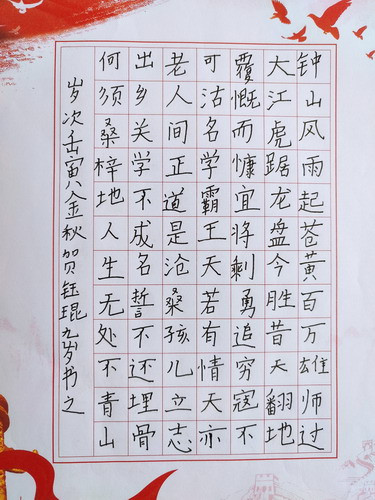 钟山风雨起苍黄百万雄师过
大江虎踞龙盘今胜昔天翻地
覆慨而慷宜将剩勇追穷寇不
可沽名学霸王天若有情天亦
老人间正道是沧桑孩儿立志
出乡关学不成名誓不还埋骨
何须桑梓地人生无处不青山
岁次壬寅八金秋贺钰琨九岁书之